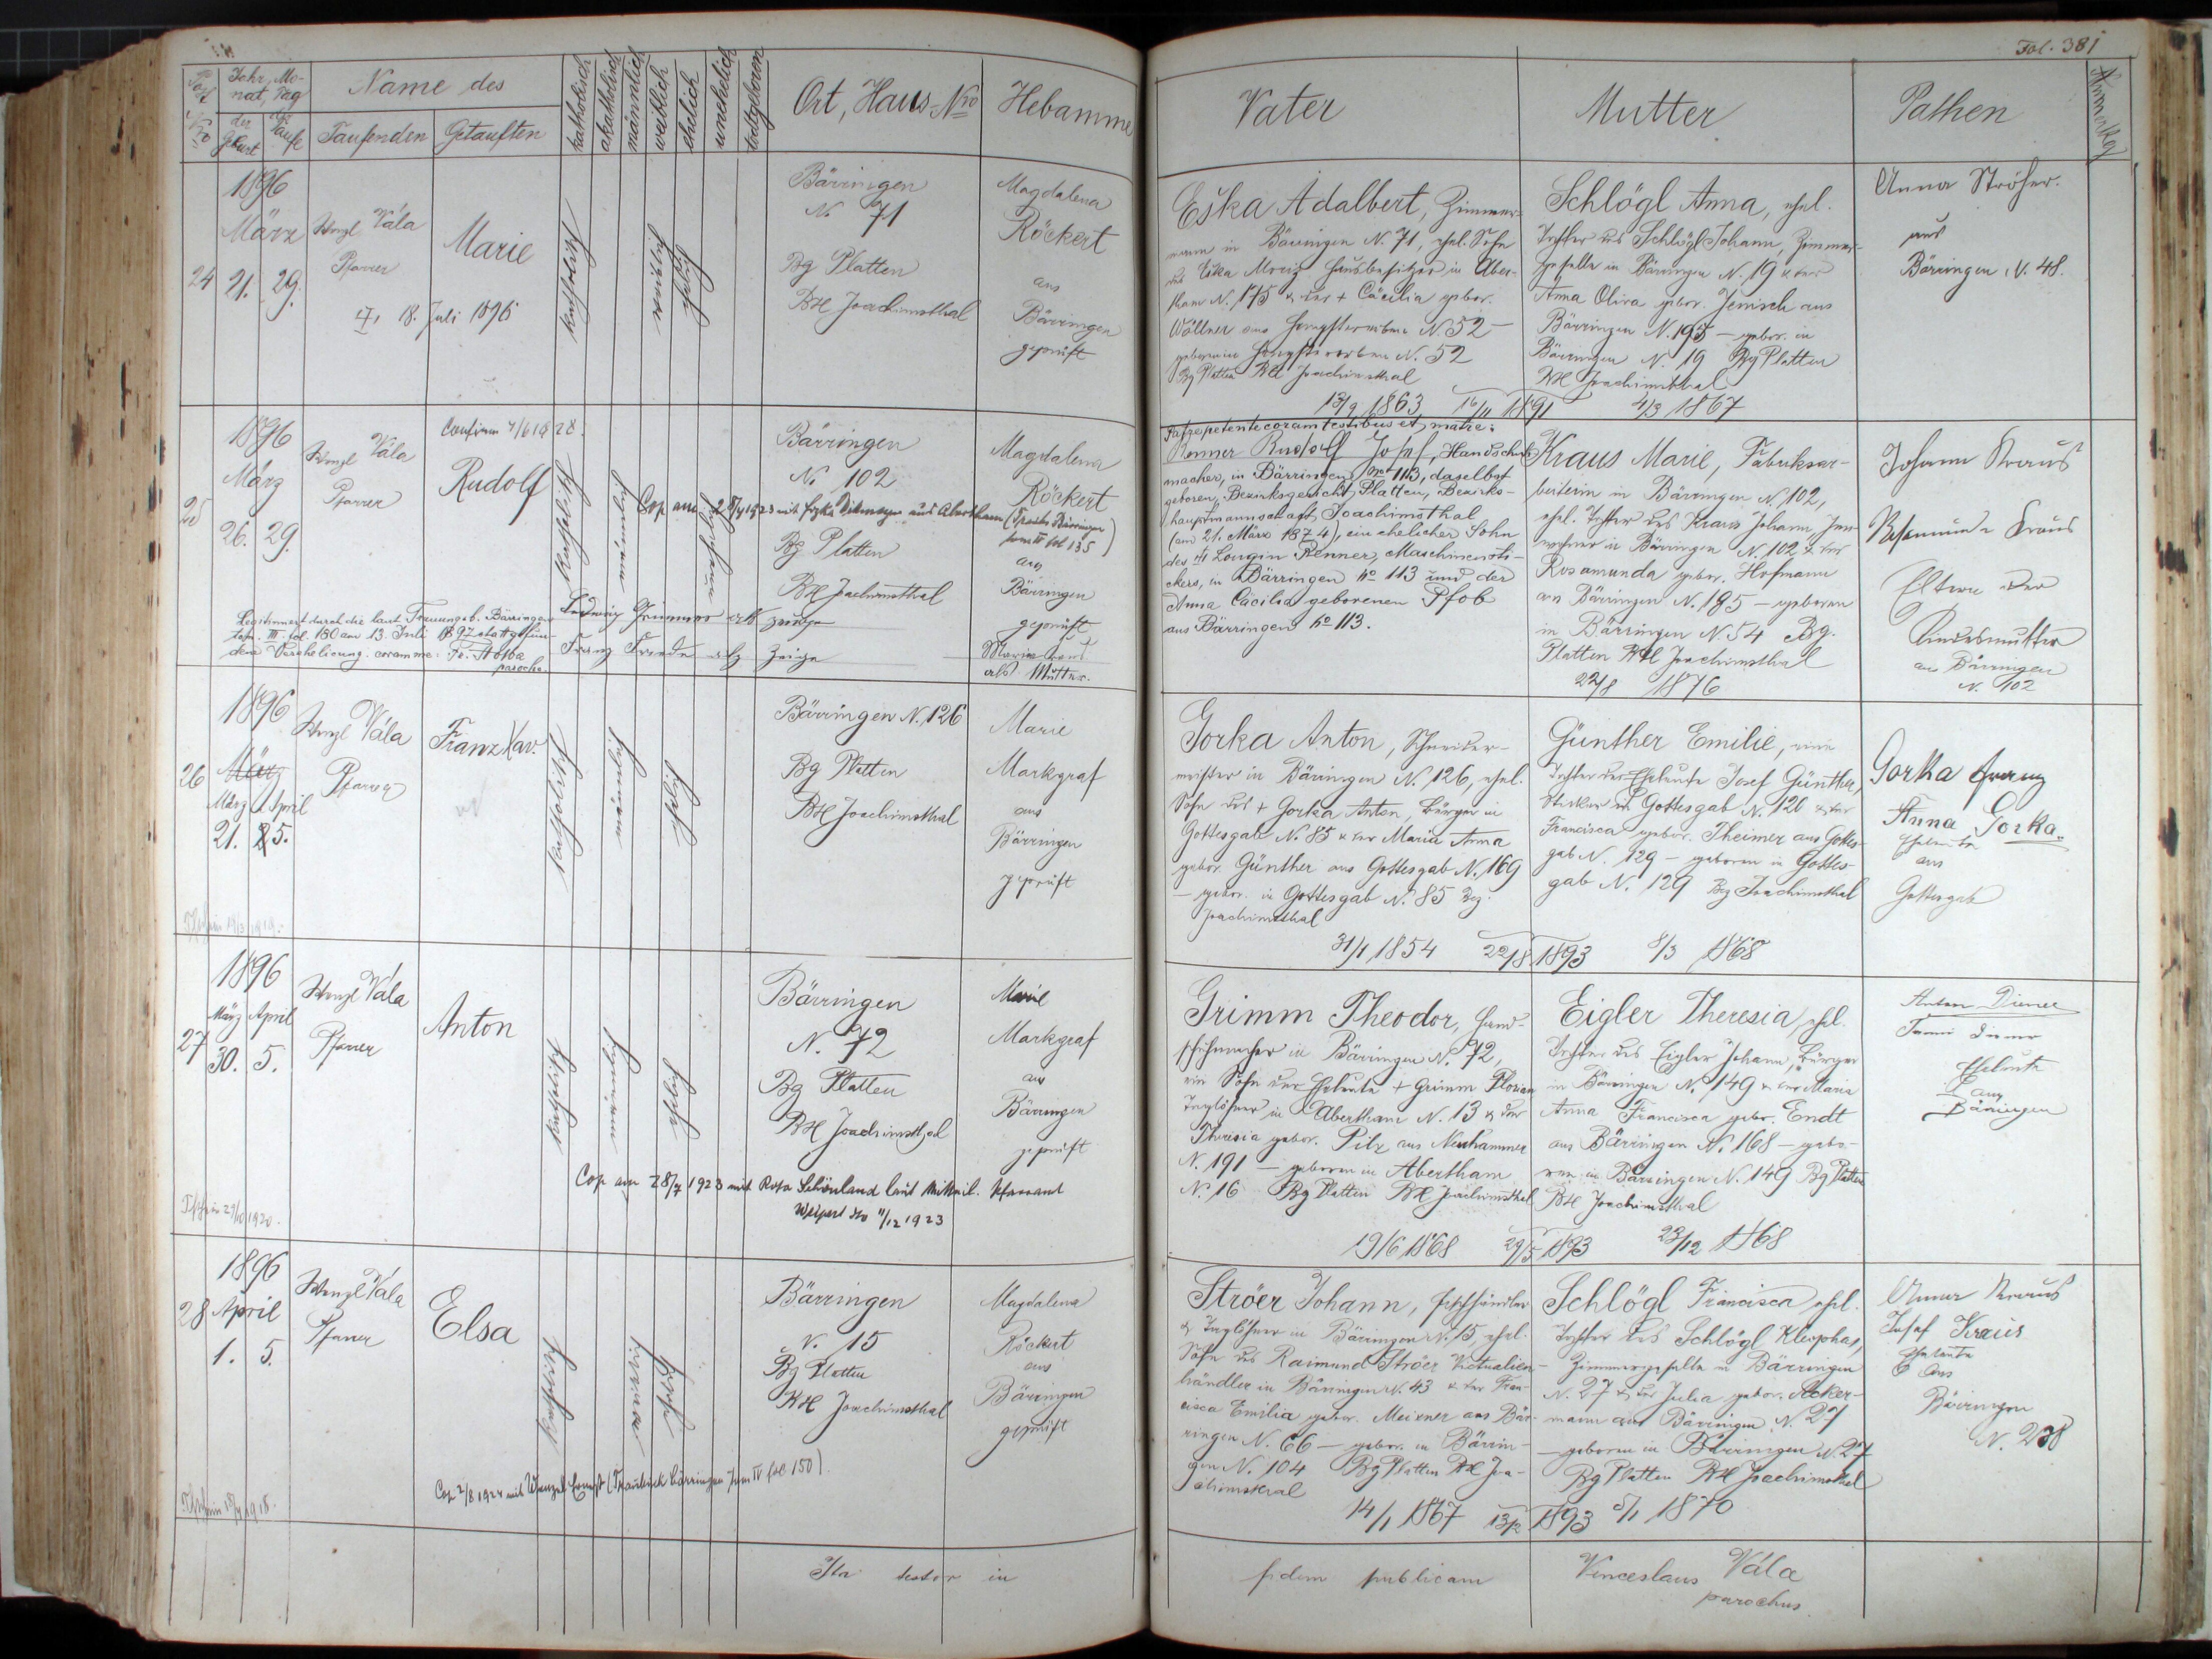 Fol. 381
Jahr, Mo-
nat, Tag
der Geburt
der Taufe
Name des
Taufenden
Getauften
katholisch
akatholisch
männlich
weiblich
ehelich
unehelich
todtgeboren
Ort, Haus-Nro
Hebamme
Vater
Mutter
Pathen
24
1896
März
21. 29.
Wenzl Vála
Pfarrer
Marie
† 18. Juli 1896
katholisch
weiblich
ehelich
Bärringen
N. 71
Bg Platten
BH Joachimsthal
Magdalena
Röckert
aus
Bärringen
geprüft
Eška Adalbert, Zimmer-
mann in Bärringen N. 71, ehel. Sohn
des Eška Moriz Hausbesitzer in Aber-
tham N. 175 & der + Cäcilia gebor.
Wöllner aus N. 52 -
geboren in N. 52
Bg Platten BH Joachimsthal
13/9 1863 16/11 1891
Schlögl Anna, ehel.
Tochter des Schlögl Johann, Zimmer-
geselle in Bärringen N. 19 & der
Anna Oliva gebor. Jenisch aus
Bärringen N. 195 - gebor. in
Bärringen N. 19 Bg Platten
BH Joachimsthal
4/3 1867
Anna Ströher
aus
Bärringen N. 48.
25
1896
März
26. 29.
Wenzl Vála
Pfarrer
Confirm 4/6 1928.
Rudolf
katholisch
männlich
unehelich
Bärringen
N. 102
Cop. am 28/4 1923 mit aus Abertham (Traub. Bärringen
tom IV fol 135)
Bg Platten
BH Joachimsthal
Magdalena
Röckert
aus
Bärringen
geprüft
Legitimiert durch die laut Trauungsb. Bärringen
tom. III. fol. 180 am 13. Juli 1897 stattgefun-
dene Verehelichung. coram me:
parocho.
Ludwig Grimm als Zeuge
Franz als Zeuge
Marie Kraus
als Mutter.
Patre petente coram testibus et matre:
Renner Rudolf Josef, Handschuh-
macher, in Bärringen No 113, daselbst
geboren, Bezirksgericht Platten, Bezirks-
hauptmannschaft Joachimsthal
(am 21. März 1874), ein ehelicher Sohn
des Longin Renner, Maschinensti-
ckers, in Bärringen No 113 und der
Anna Cäcilia geborenen Pfob
aus Bärringen No 113.
Kraus Marie, Fabriksar-
beiterin in Bärringen N. 102,
ehel. Tochter des Kraus Johann, Inn-
wohner in Bärringen N. 102 & der
Rosamunda gebor. Hofmann
aus Bärringen N. 195 - geboren
in Bärringen N. 54 Bg.
Platten BH Joachimsthal
22/8 1876
Johann Kraus
Rosamunda Kraus
Eltern der
Kindesmutter
aus Bärringen
N. 102
26
1896
März
März April
21. 5.
Wenzl Vála
Pfarrer
Franz Xav.
katholisch
männlich
ehelich
Bärringen N. 126
Bg Platten
BH Joachimsthal
Marie
Markgraf
aus
Bärringen
geprüft
Gorka Anton, Schneider-
meister in Bärringen N. 126, ehel.
Sohn des + Gorka Anton, Bürger in
Gottesgab N. 85 & der Maria Anna
gebor. Günther aus Gottesgab N. 169
- gebor. in Gottesgab N. 85 Bez.
Joachimsthal
31/1 1854 22/8 1893
Günther Emilie, eine
Tochter der Eheleute Josef Günther,
Sticker in Gottesgab N. 120 & der
Francisca gebor. Theimer aus Gottes-
gab N. 129 - geboren in Gottes-
gab N. 129 Bez Joachimsthal
8/3 1868
Gorka Franz
Anna Gorka
Eheleute
aus
Gottesgab
27
1896
März April
30. 5.
Wenzl Vála
Pfarrer
Anton
katholisch
männlich
ehelich
Bärringen
N. 72
Bg Platten
BH Joachimsthal
Marie
Markgraf
aus
Bärringen
geprüft
Cop am 28/7 1923 mit Rosa Schönland laut Mitteil. Pfarramt
Weipert 11/12 1923
Grimm Theodor, Hand-
schuhmacher in Bärringen N. 72,
ein Sohn der Eheleute + Grimm Florian
Taglöhner in Abertham N. 13 & der
Theresia gebor. Pilz aus Neuhammer
N. 191 - geboren in Abertham
N. 16 Bg Platten BH Joachimsthal
19/6 1868 29/5 1893
Eigler Theresia, ehel.
Tochter des Eigler Johann, Bürger
in Bärringen N. 149 & der Maria
Anna Francisca gebor. Endt
aus Bärringen N. 168 - gebo-
ren in Bärringen N. 149 Bg Platten
BH Joachimsthal
23/12 1868
Anton Diener
Eheleute
aus
Bärringen
28
1896
April
1. 5.
Wenzl Vála
Pfarrer
Elsa
katholisch
weiblich
ehelich
Bärringen
N. 15
Bg Platten
BH Joachimsthal
Magdalena
Röckert
aus
Bärringen
geprüft
Cop 2/8 1924 mit Wenzel Ernst (Traubuch Bärringen tom IV fol 150).
Ströer Johann, Fischhändler
& Taglöhner in Bärringen N. 15, ehel.
Sohn des Raimund Ströer Victualien-
händler in Bärringen N. 43 & der Fran-
cisca Emilia gebor. Meixner aus Bär-
ringen N. 66 - gebor. in Bärrin-
gen N. 104 Bg Platten BH Joa-
chimsthal
14/1 1867 13/2 1893
Schlögl Francisca, ehel.
Tochter des Schlögl Kleophas,
Zimmergeselle in Bärringen
N. 27 & der Julia gebor. Acker-
mann aus Bärringen N. 27
- geboren in Bärringen N. 27
Bg Platten BH Joachimsthal
5/1 1870
Anna Kraus
Josef Kraus
Eheleute
aus
Bärringen
N. 238
Ita testor in fidem publicam Venceslaus Vála
parochus